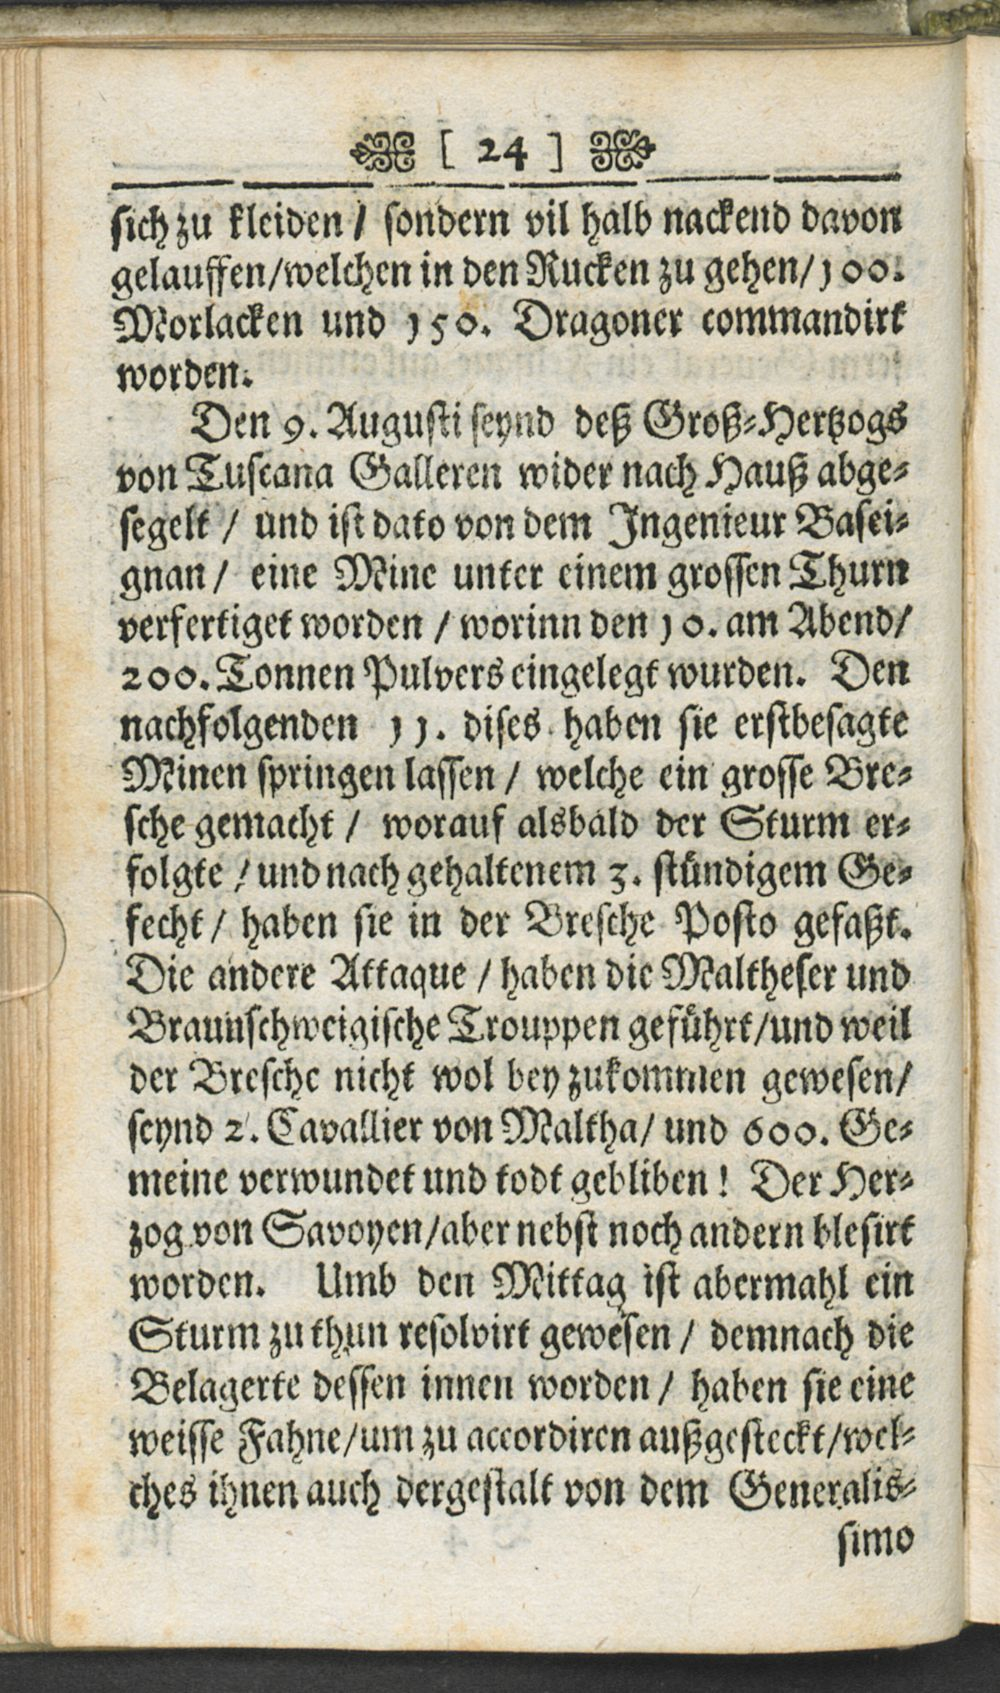 [ 24 ]
sich zu kleiden / sondern vil halb nackend davon
gelauffen/welchen in den Rucken zu gehen/100.
Morlacken und 150. Dragoner commandirt
worden.
Den 9. Augusti seynd deß Groß-Hertzogs
von Tuscana Galleren wider nach Hauß abge-
segelt / und ist dato von dem Ingenieur Basei-
gnan / eine Mine unter einem grossen Thurn
verfertiget worden / worinn den 10. am Abend/
200. Tonnen Pulvers eingelegt wurden. Den
nachfolgenden 11. dises haben sie erstbesagte
Minen springen lassen / welche ein grosse Bre-
sche gemacht / worauf alsbald der Sturm er-
folgte / und nach gehaltenem 3. stündigem Ge-
fecht / haben sie in der Bresche Posto gefaßt.
Die andere Attaque / haben die Maltheser und
Braunschweigische Trouppen geführt/und weil
der Bresche nicht wol bey zukommen gewesen/
seynd 2. Cavallier von Maltha/ und 600. Ge-
meine verwundet und todt gebliben! Der Her-
zog von Savoyen/aber nebst noch andern blesirt
worden. Umb den Mittag ist abermahl ein
Sturm zu thun resolvirt gewesen / demnach die
Belagerte dessen innen worden / haben sie eine
weisse Fahne/um zu accordiren außgesteckt/wel-
ches ihnen auch dergestalt von dem Generalis-
simo